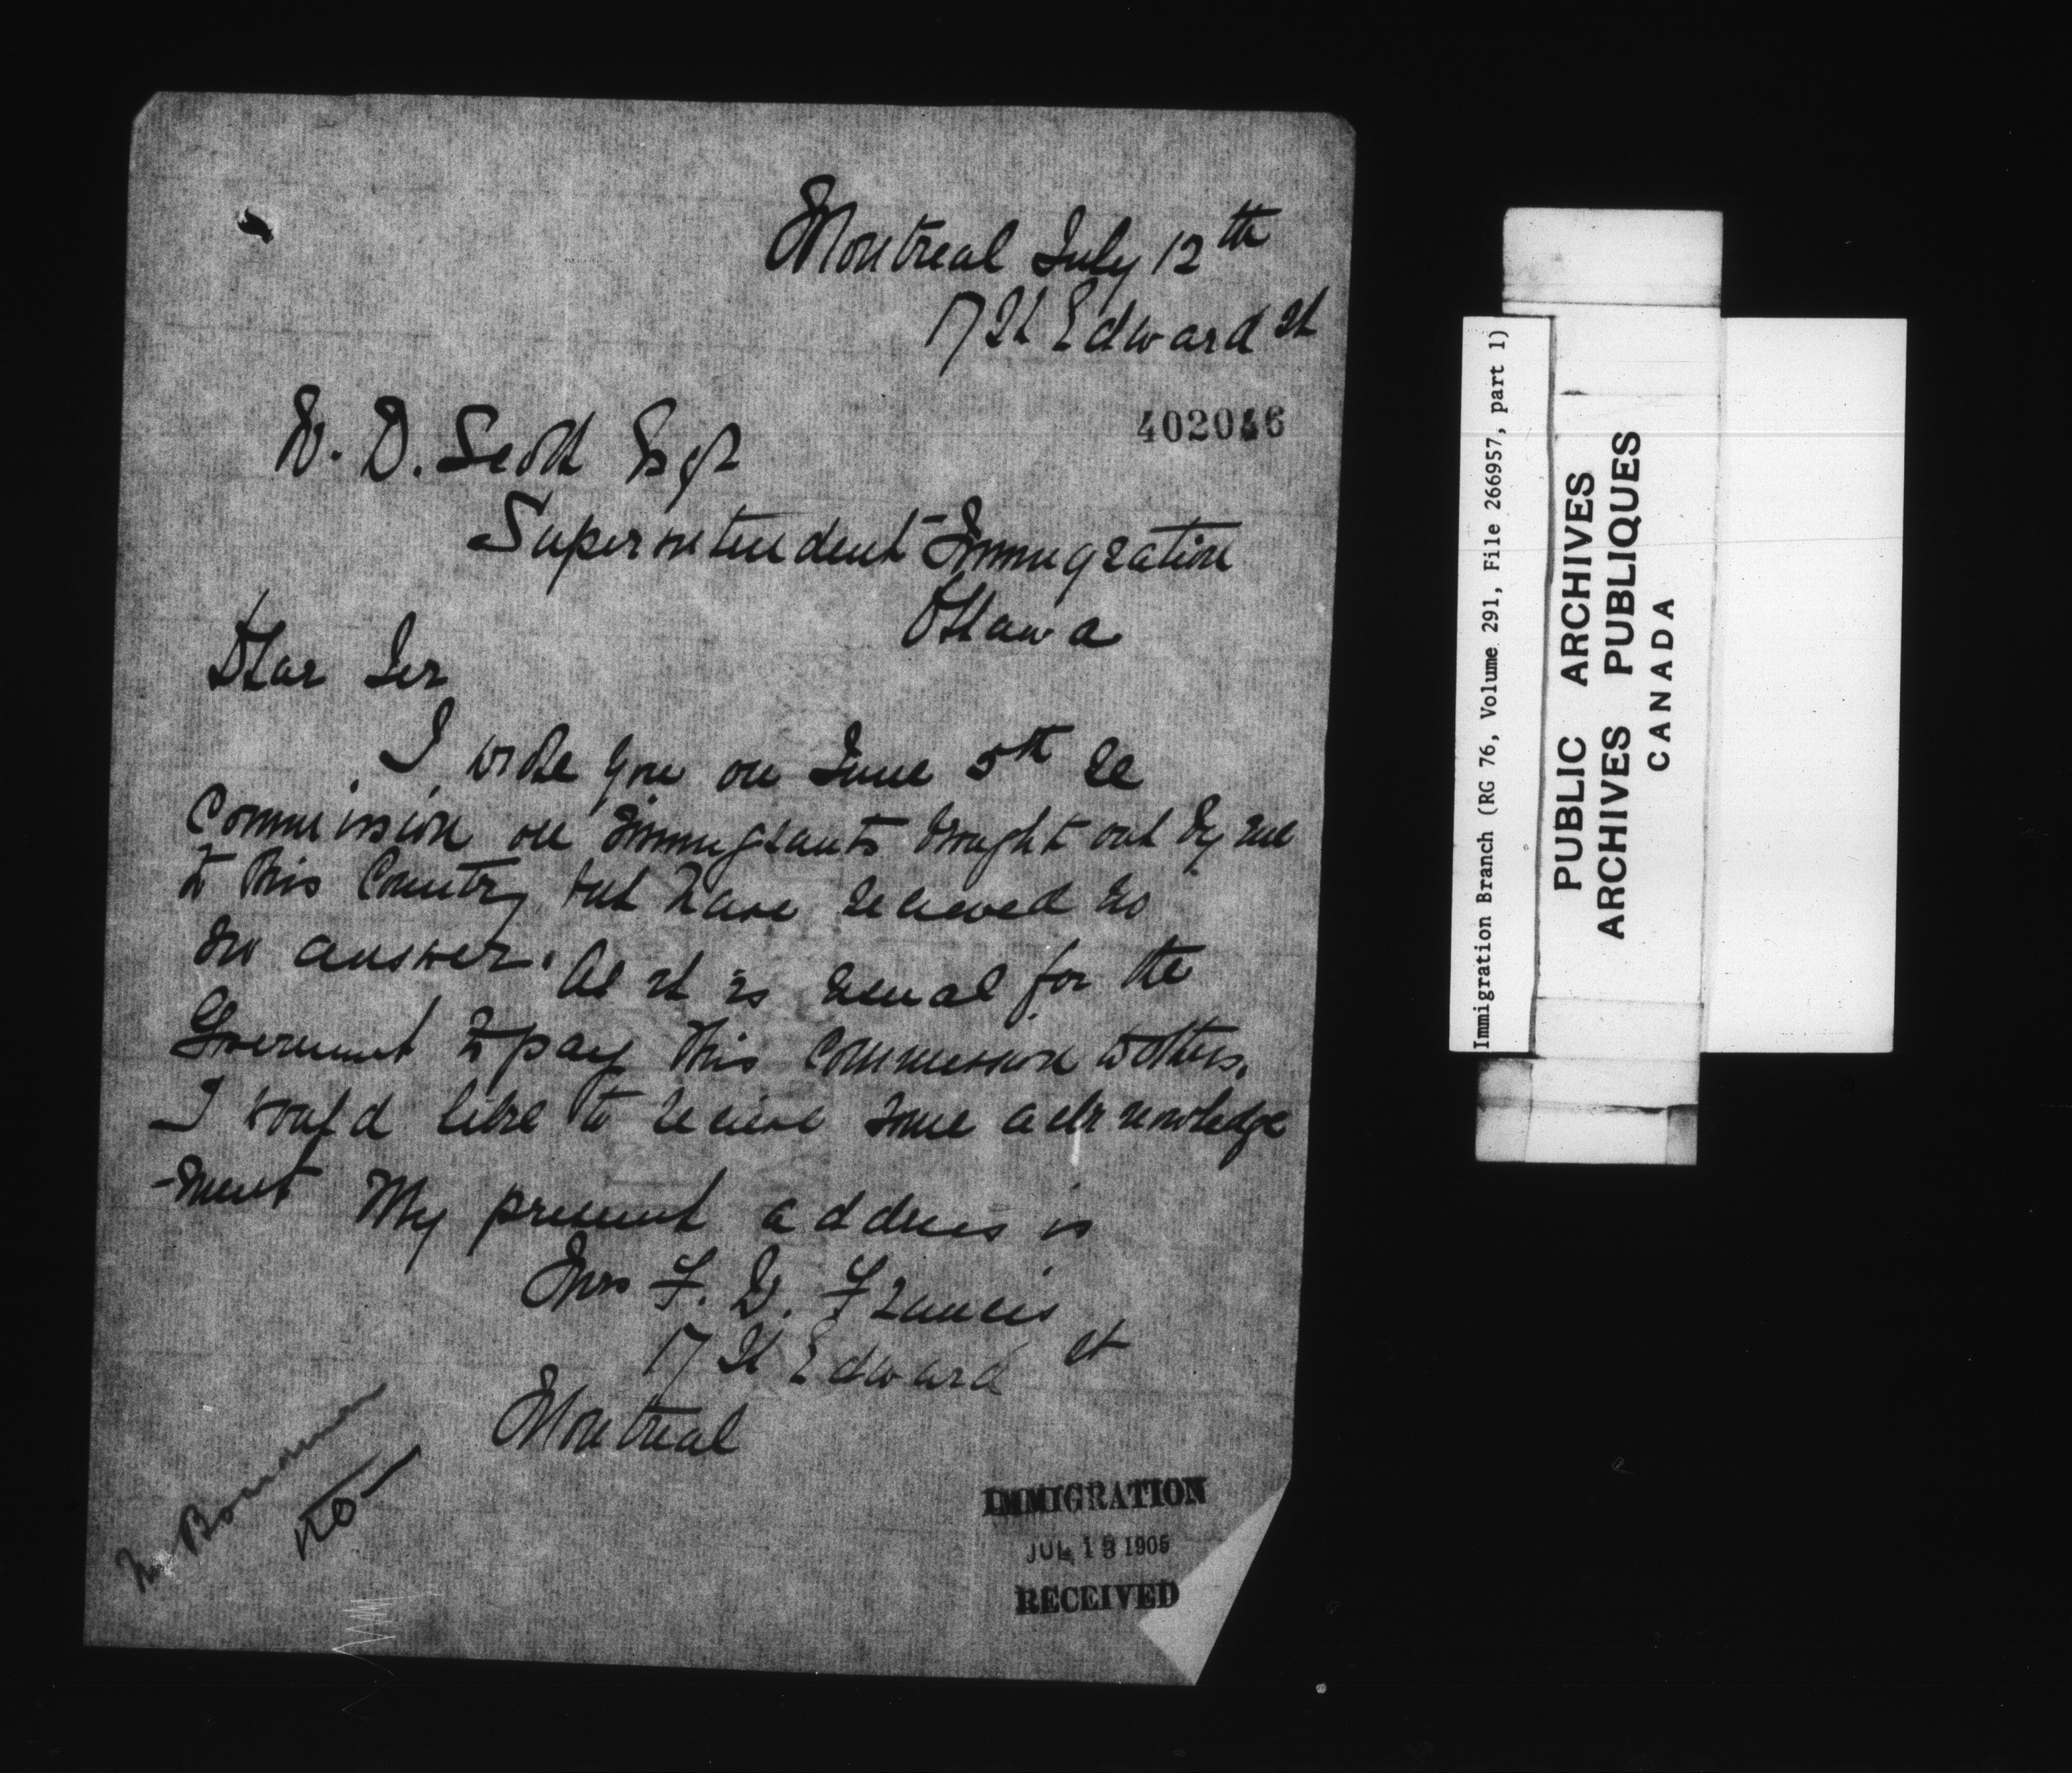 Montreal July 12th
17 St Edward St
402046
W. D. Scott Esqr
Superintendent Immigration
Ottawa
Dear Sir
I wrote you on June 5th re
Commission on Immigrants brought out by me
to this Country but have recieved no
no answer. As it is usual for the
Government to pay this Commission to others.
I would like to recieve some acknowledge
-ment My present address is
Mrs F. D. Francis
17 St Edward St
Montreal
IMMIGRATION
JUL 13 1905
RECEIVED
Immigration Branch (RG 76, Volume 291, File 266957, part 1)
PUBLIC ARCHIVES
ARCHIVES PUBLIQUES
CANADA